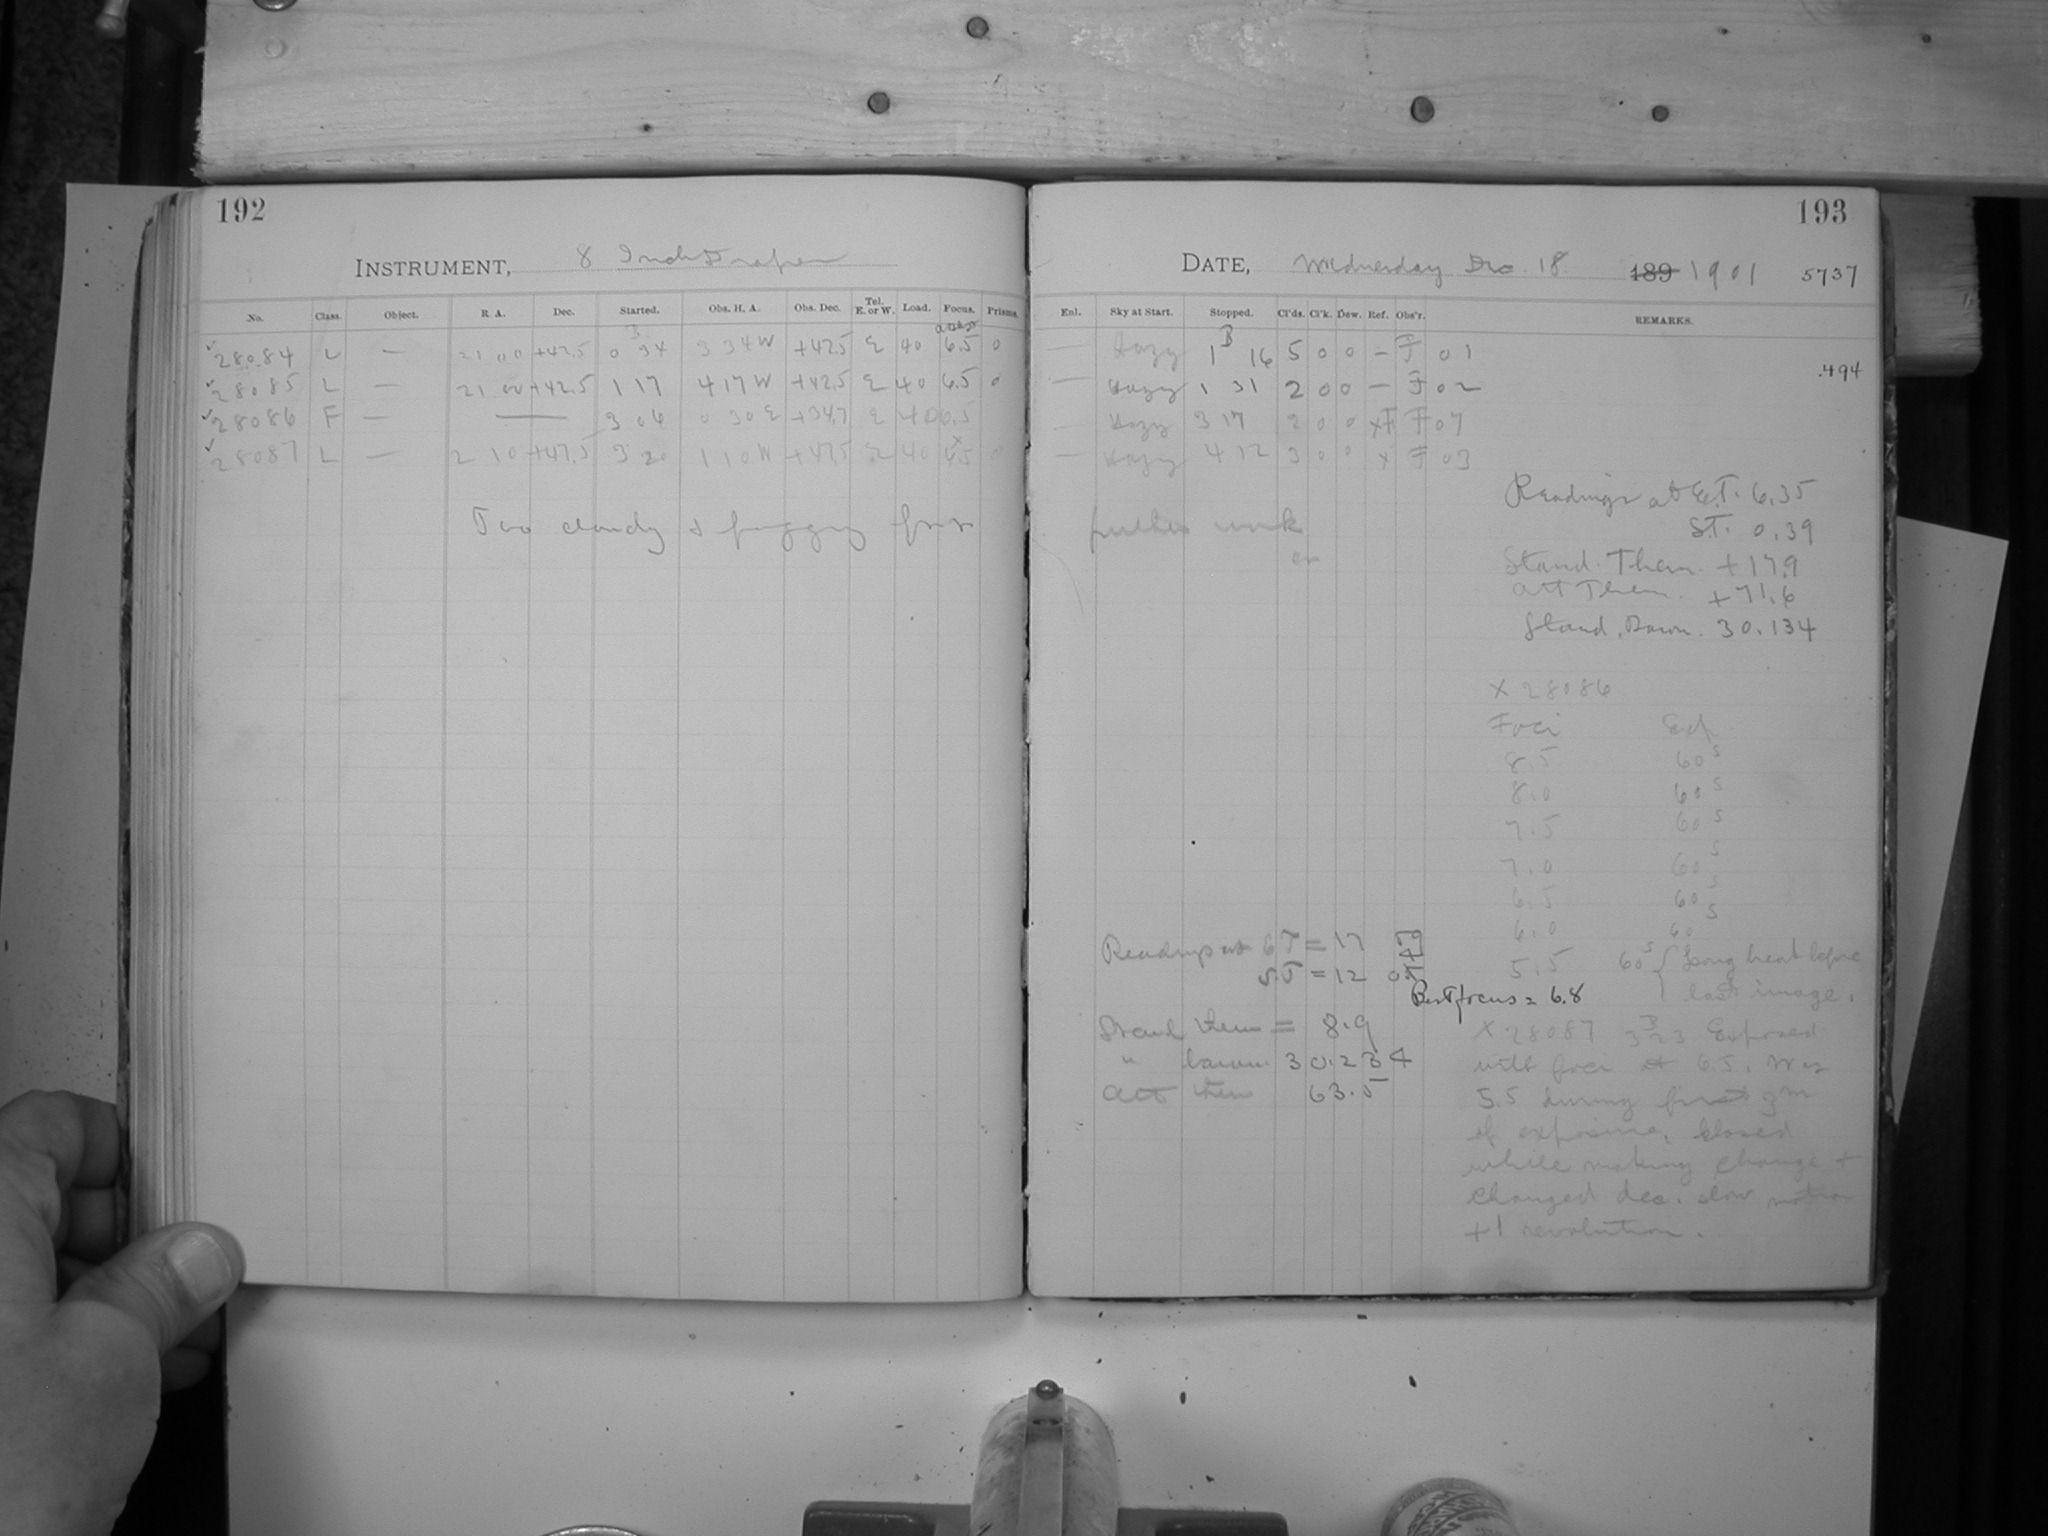 192
INSTRUMENT, 8 Inch Draper
No. Class. Object. R. A. Dec. Started. Obs. H. A. Obs. Dec. Tel. E. or W. Load. Focus. Prisms.
28084 L — 21 00 +42.5 0 34 3 34 W +42.5 E 40 6.5 0
28085 L — 21 00 +42.5 1 17 4 17 W +42.5 E 40 6.5 0
28086 F — — 3 06 0 30 E +34.7 E 40 6.5
28087 L — 2 10 +47.5 3 20 1 10 W +47.5 E 40 6.5 0
Too cloudy & foggy for
193
DATE, Wednesday Dec. 18 189 1901 5737
Enl. Sky at Start. Stopped. Cl'ds. Cl'k. Dew. Ref. Obs'r. REMARKS.
— Hazy 1 16 5 0 0 — F 01
.494
— Hazy 1 31 2 0 0 — F 02
— Hazy 3 17 2 0 0 xF F 07
— Hazy 4 12 3 0 0 x F 03
further work
Readings at E.T. 6.35
S.T. 0.39
Stand. Them. +17.9
Att Them. +71.6
Stand. Barom. 30.134
X 28086
Foci Exp
8.5 60s
8.0 60s
7.5 60s
7.0 60s
6.5 60s
6.0 60s
5.5 60s { Long heat before
last image.
Readings at 6 T = 17
S.T = 12
Best focus = 6.8
Stand them = 8.9
" barom. 30.234
Att them 63.5
X 28087 3 23 Exposed
with foci at 6.5. Was
5.5 during first 3m
of exposure, closed
while making change &
changed dec. slow motion
+1 revolution.